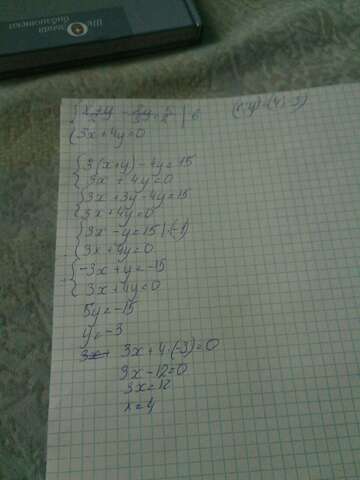 библиотека
{(x+y)/2 - 2y/3 = 5/2 | 6 (x;y)=(4;-3)
{3x+4y=0
{3(x+y)-4y=15
{3x+4y=0
{3x+3y-4y=15
{3x+4y=0
{3x-y=15|·(-1)
{3x+4y=0
{-3x+y=-15
{3x+4y=0
5y=-15
y=-3
3x+ 3x+4·(-3)=0
3x-12=0
3x=12
x=4